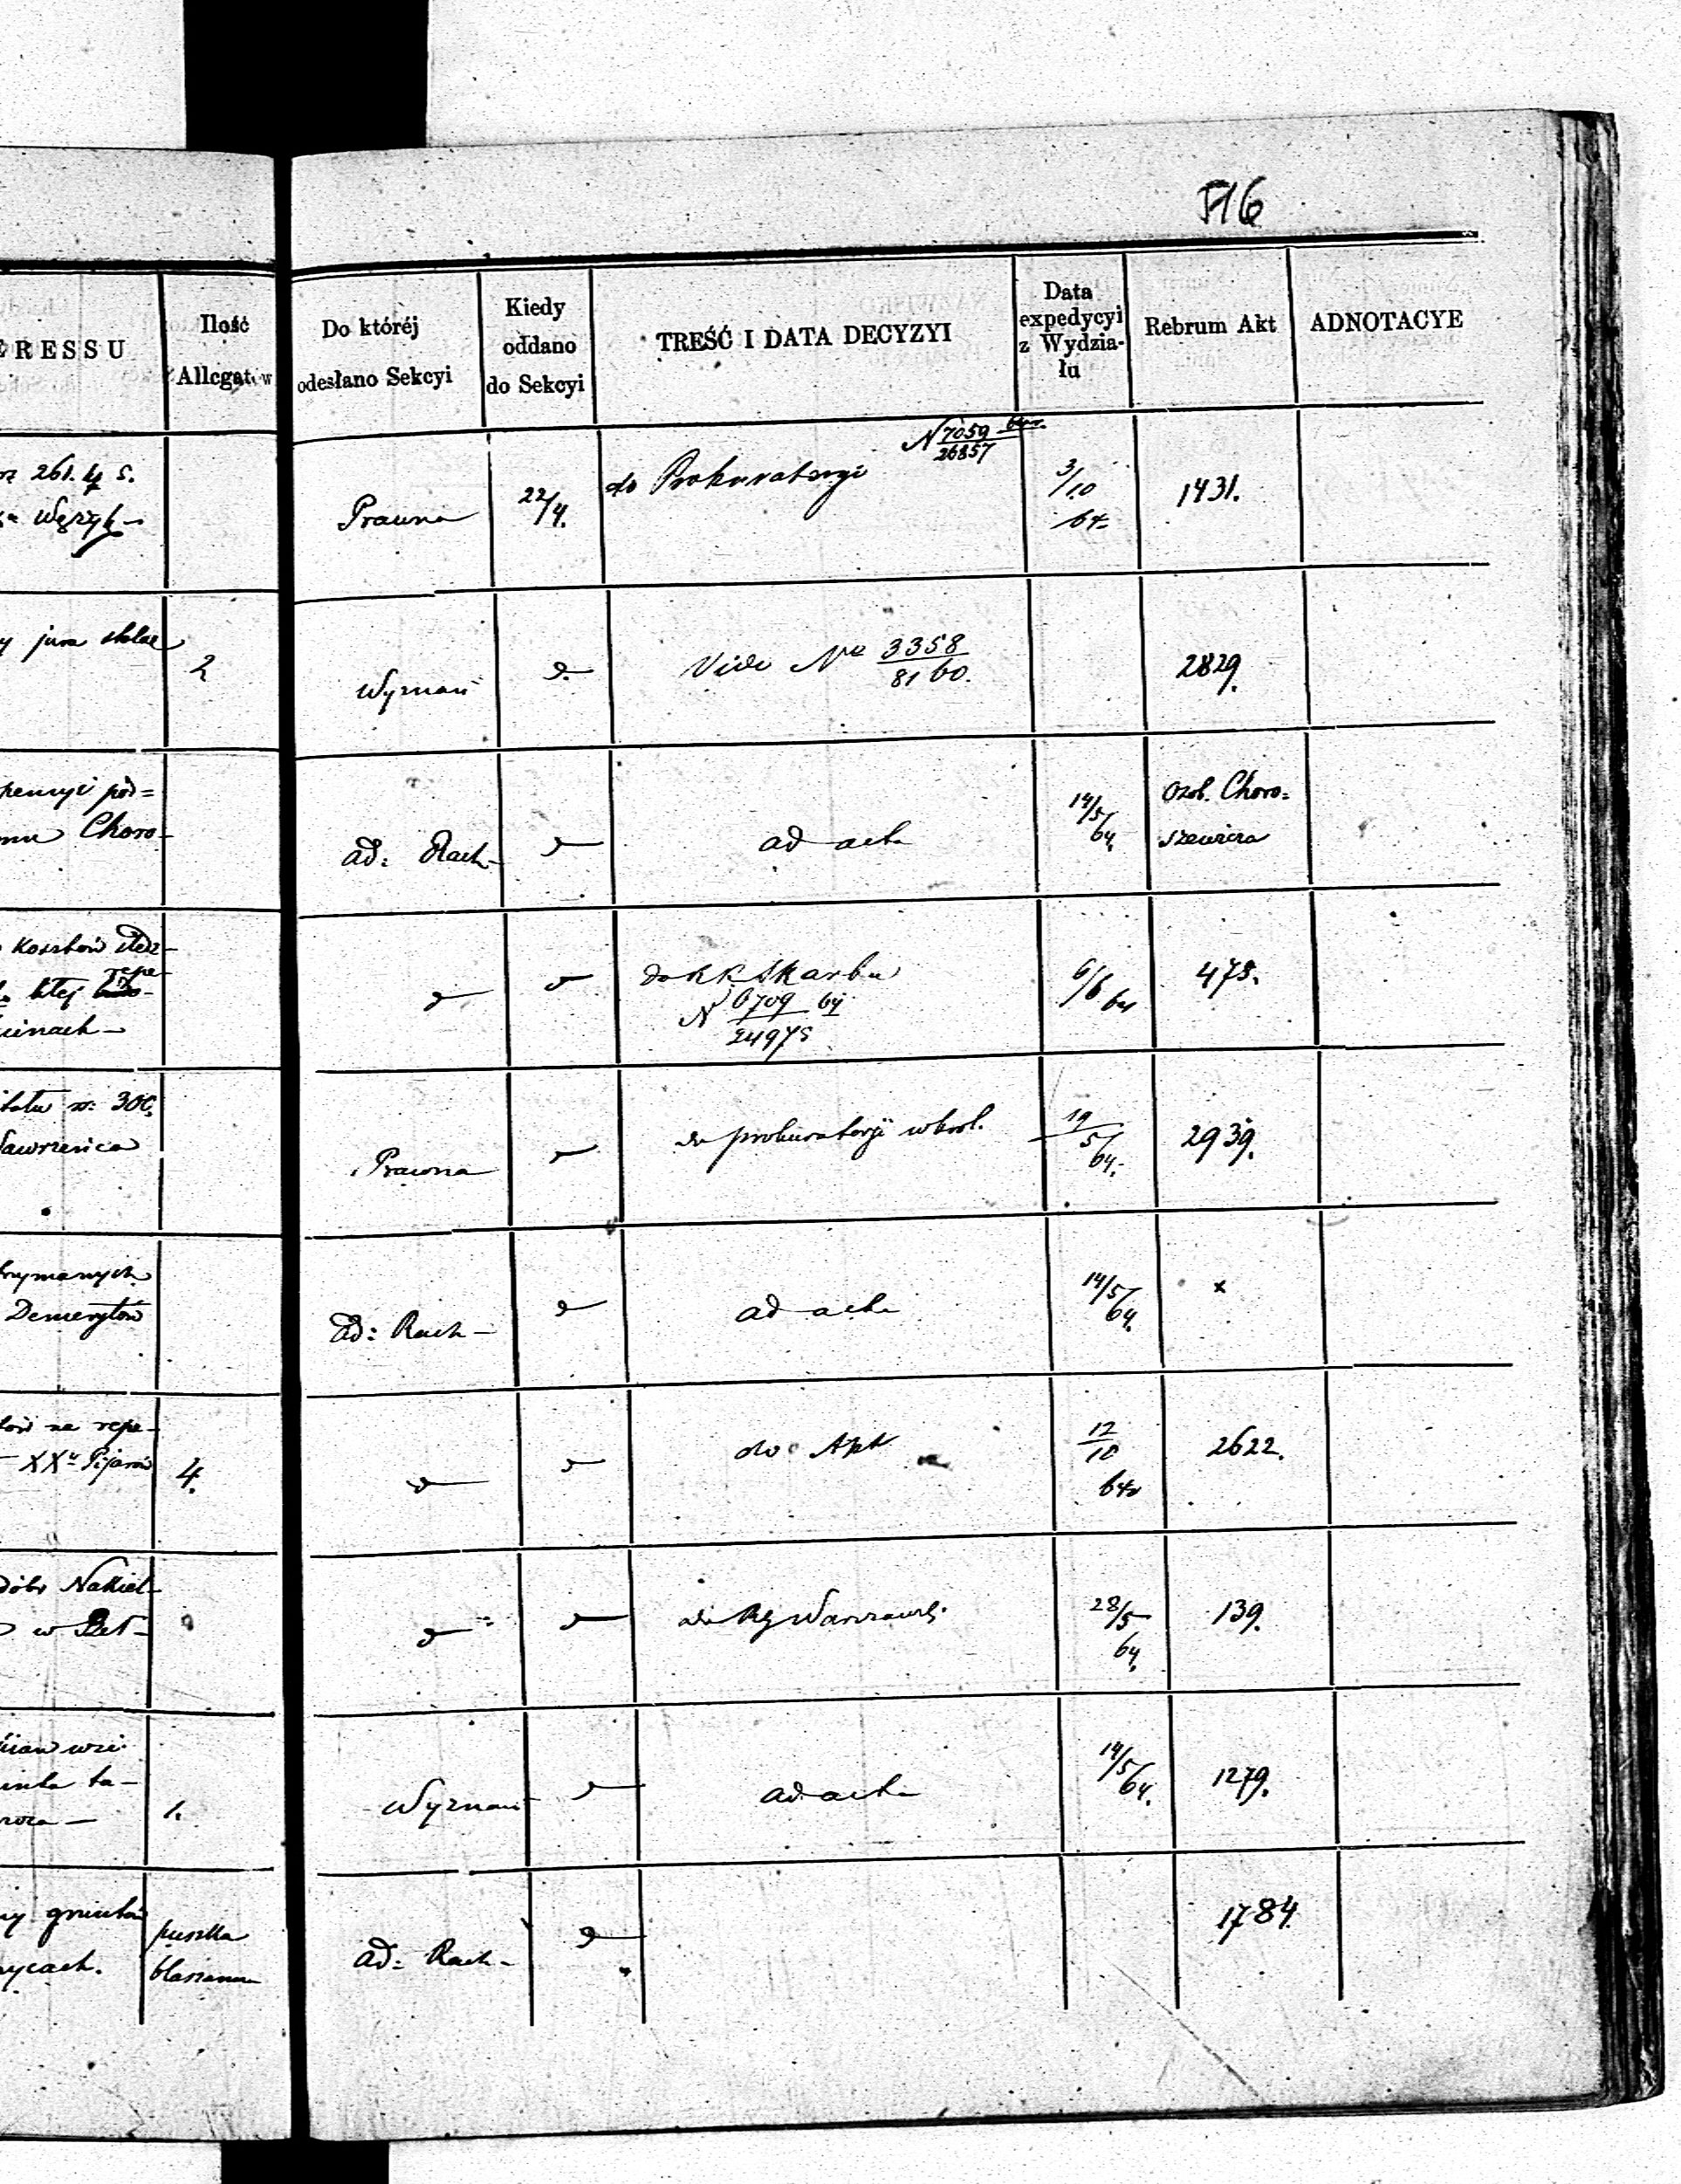 516
ERESSU
Ilość
Allegatów
Do któréj
odesłano Sekcyi
Kiedy
oddano
do Sekcyi
TREŚĆ I DATA DECYZYI
Data
expedycyi
z Wydzia-
łu
Rebrum Akt
ADNOTACYE
261. 4 s.
Węzyk
Prawna
22/4.
do Prokuratoryi
N 7059 64
26857
3/10
64
1431.
jura stolae
2
Wyznań
d
Vide No 3358
81 60.
2829.
pensyi pod=
Choro-
ad: Rach-
d
ad acta
14/5
64.
Osob. Choro=
szewicza
kosztów
repe-
d
d
do KR Skarbu
N 6709 64
24975
6/6 64
475.
300
Prawna
d
do prokuratoryi w król.
19
5/
64.
2939.
Demerytów
ad: Rach-
d
ad acta
14/5
64.
x
na repe-
XX Pijarów
4.
d
d
do Akt
12
10
64
2622.
dóbr Nakiel-
d
d
do RG Warszawsk.
28/5
64.
139.
1.
Wyznań
d
ad acta
14/5
64.
1279.
gruntów
puszka
blaszana
ad: Rach-
d
1784.